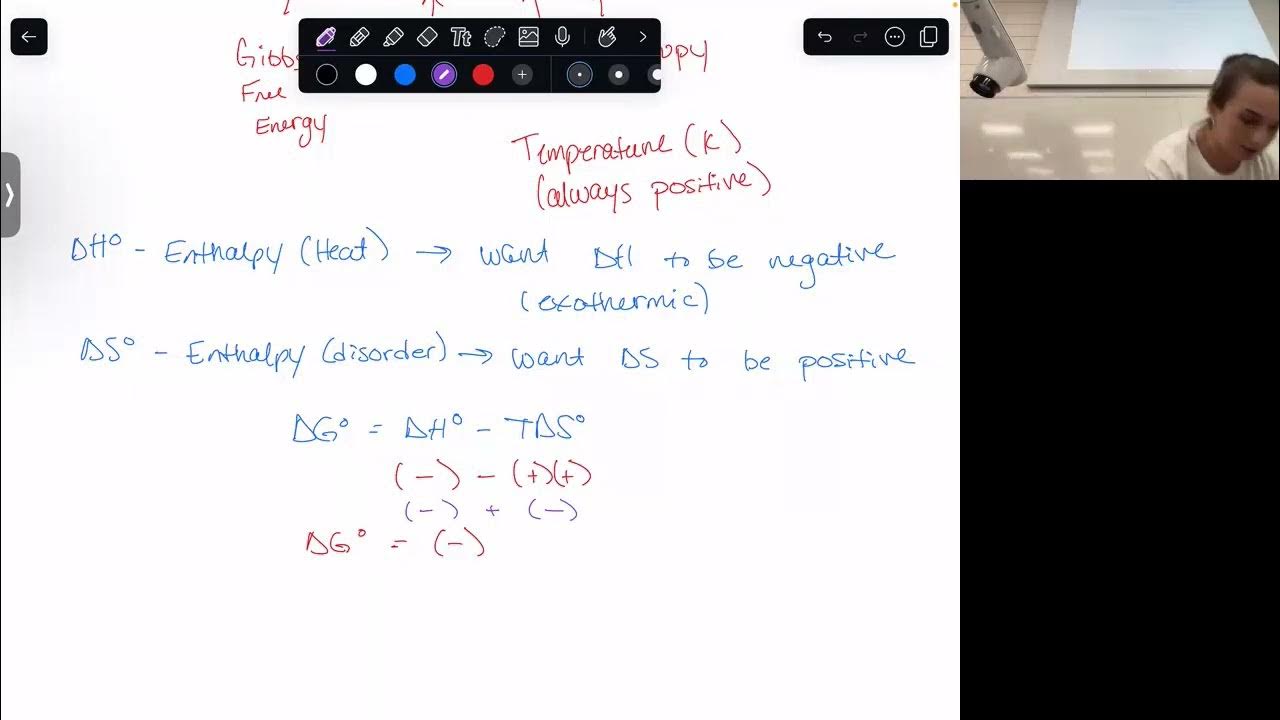 Gibbs
opy
Free
Energy
Temperature (K)
(always positive)
ΔH° - Enthalpy (Heat) → want ΔH to be negative
(exothermic)
ΔS° - Enthalpy (disorder) → want ΔS to be positive
ΔG° = ΔH° - TΔS°
(-) - (+)(+)
(-) + (-)
ΔG° = (-)
Tt